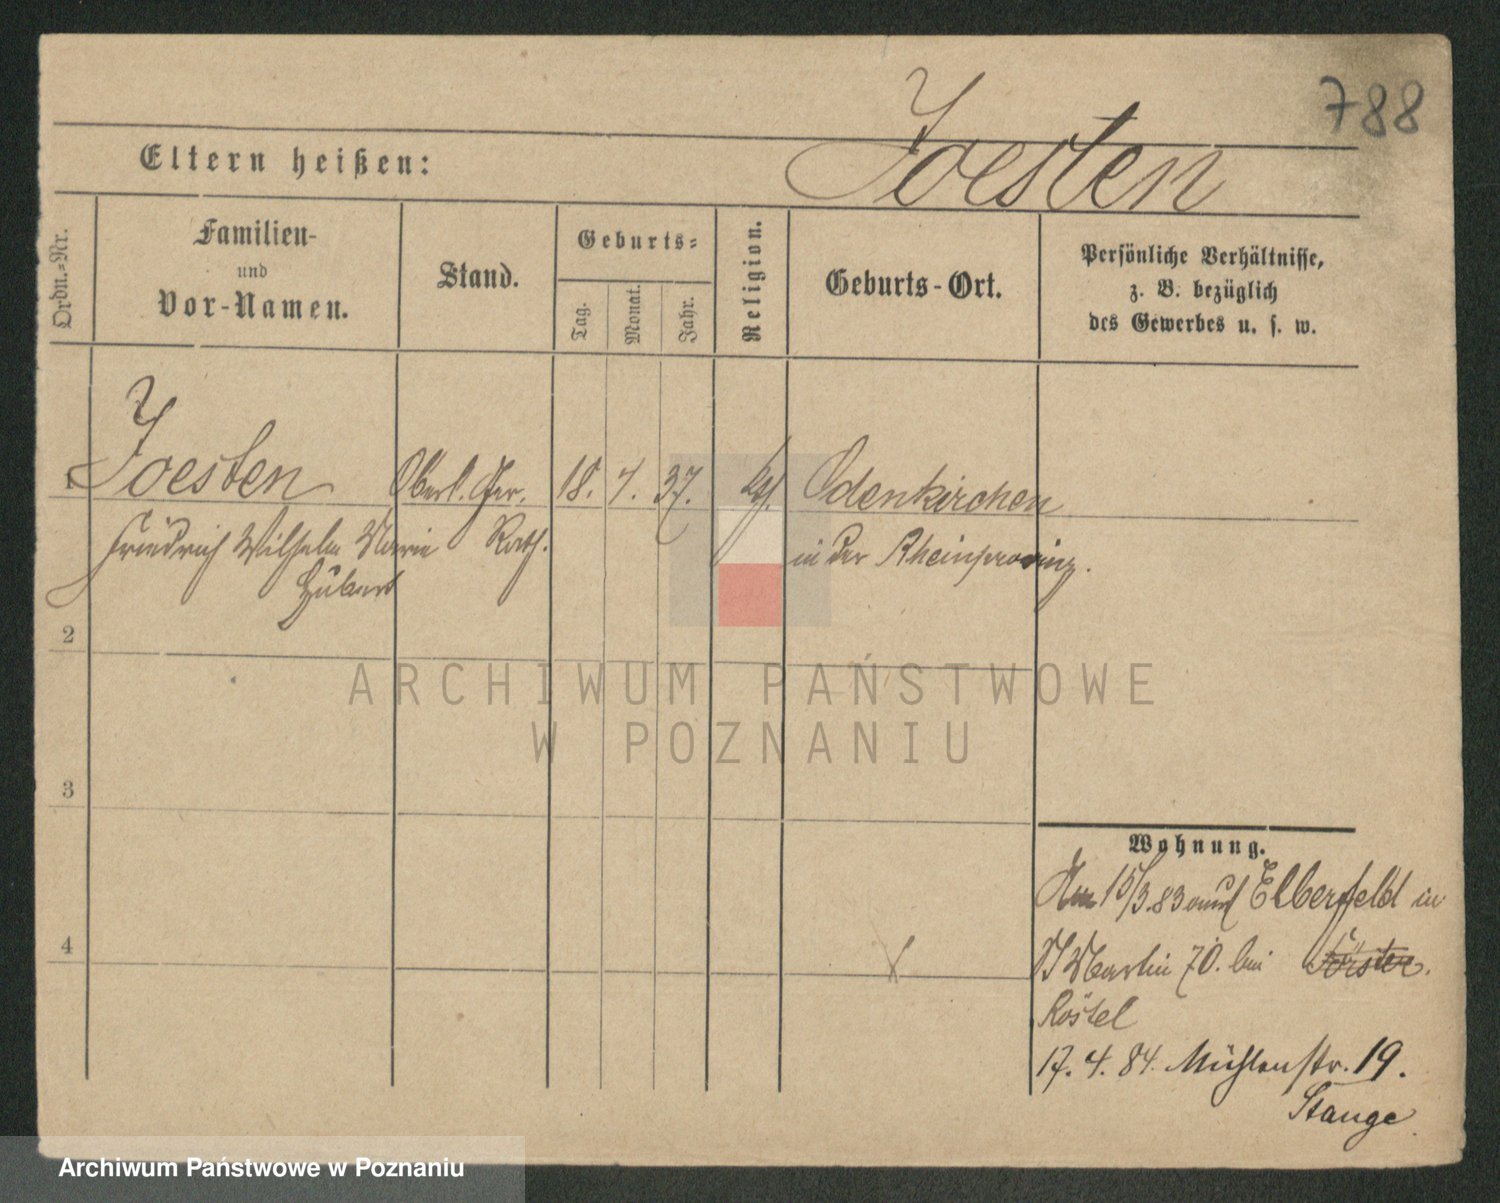 788
Joesten
Eltern heißen:
Ordn.-Nr.
Familien-
und
Vor-Namen.
Stand.
Geburts-
Tag.
Monat.
Jahr.
Religion.
Geburts-Ort.
Persönliche Verhältnisse,
z. B. bezüglich
des Gewerbes u. s. w.
1 Joesten Oberl. Ger. 18. 4. 37. Odenkirchen
Friedrich Wilhelm Marie Rath. in der Rheinprovinz.
Hubert
2
ARCHIWUM PAŃSTWOWE
W POZNANIU
3
Wohnung.
Am 15/3.83 Elberfeld in
4
St Martin 70. bei Förster.
Röstel
17. 4. 84. Mühlenstr. 19.
Stange
Archiwum Państwowe w Poznaniu